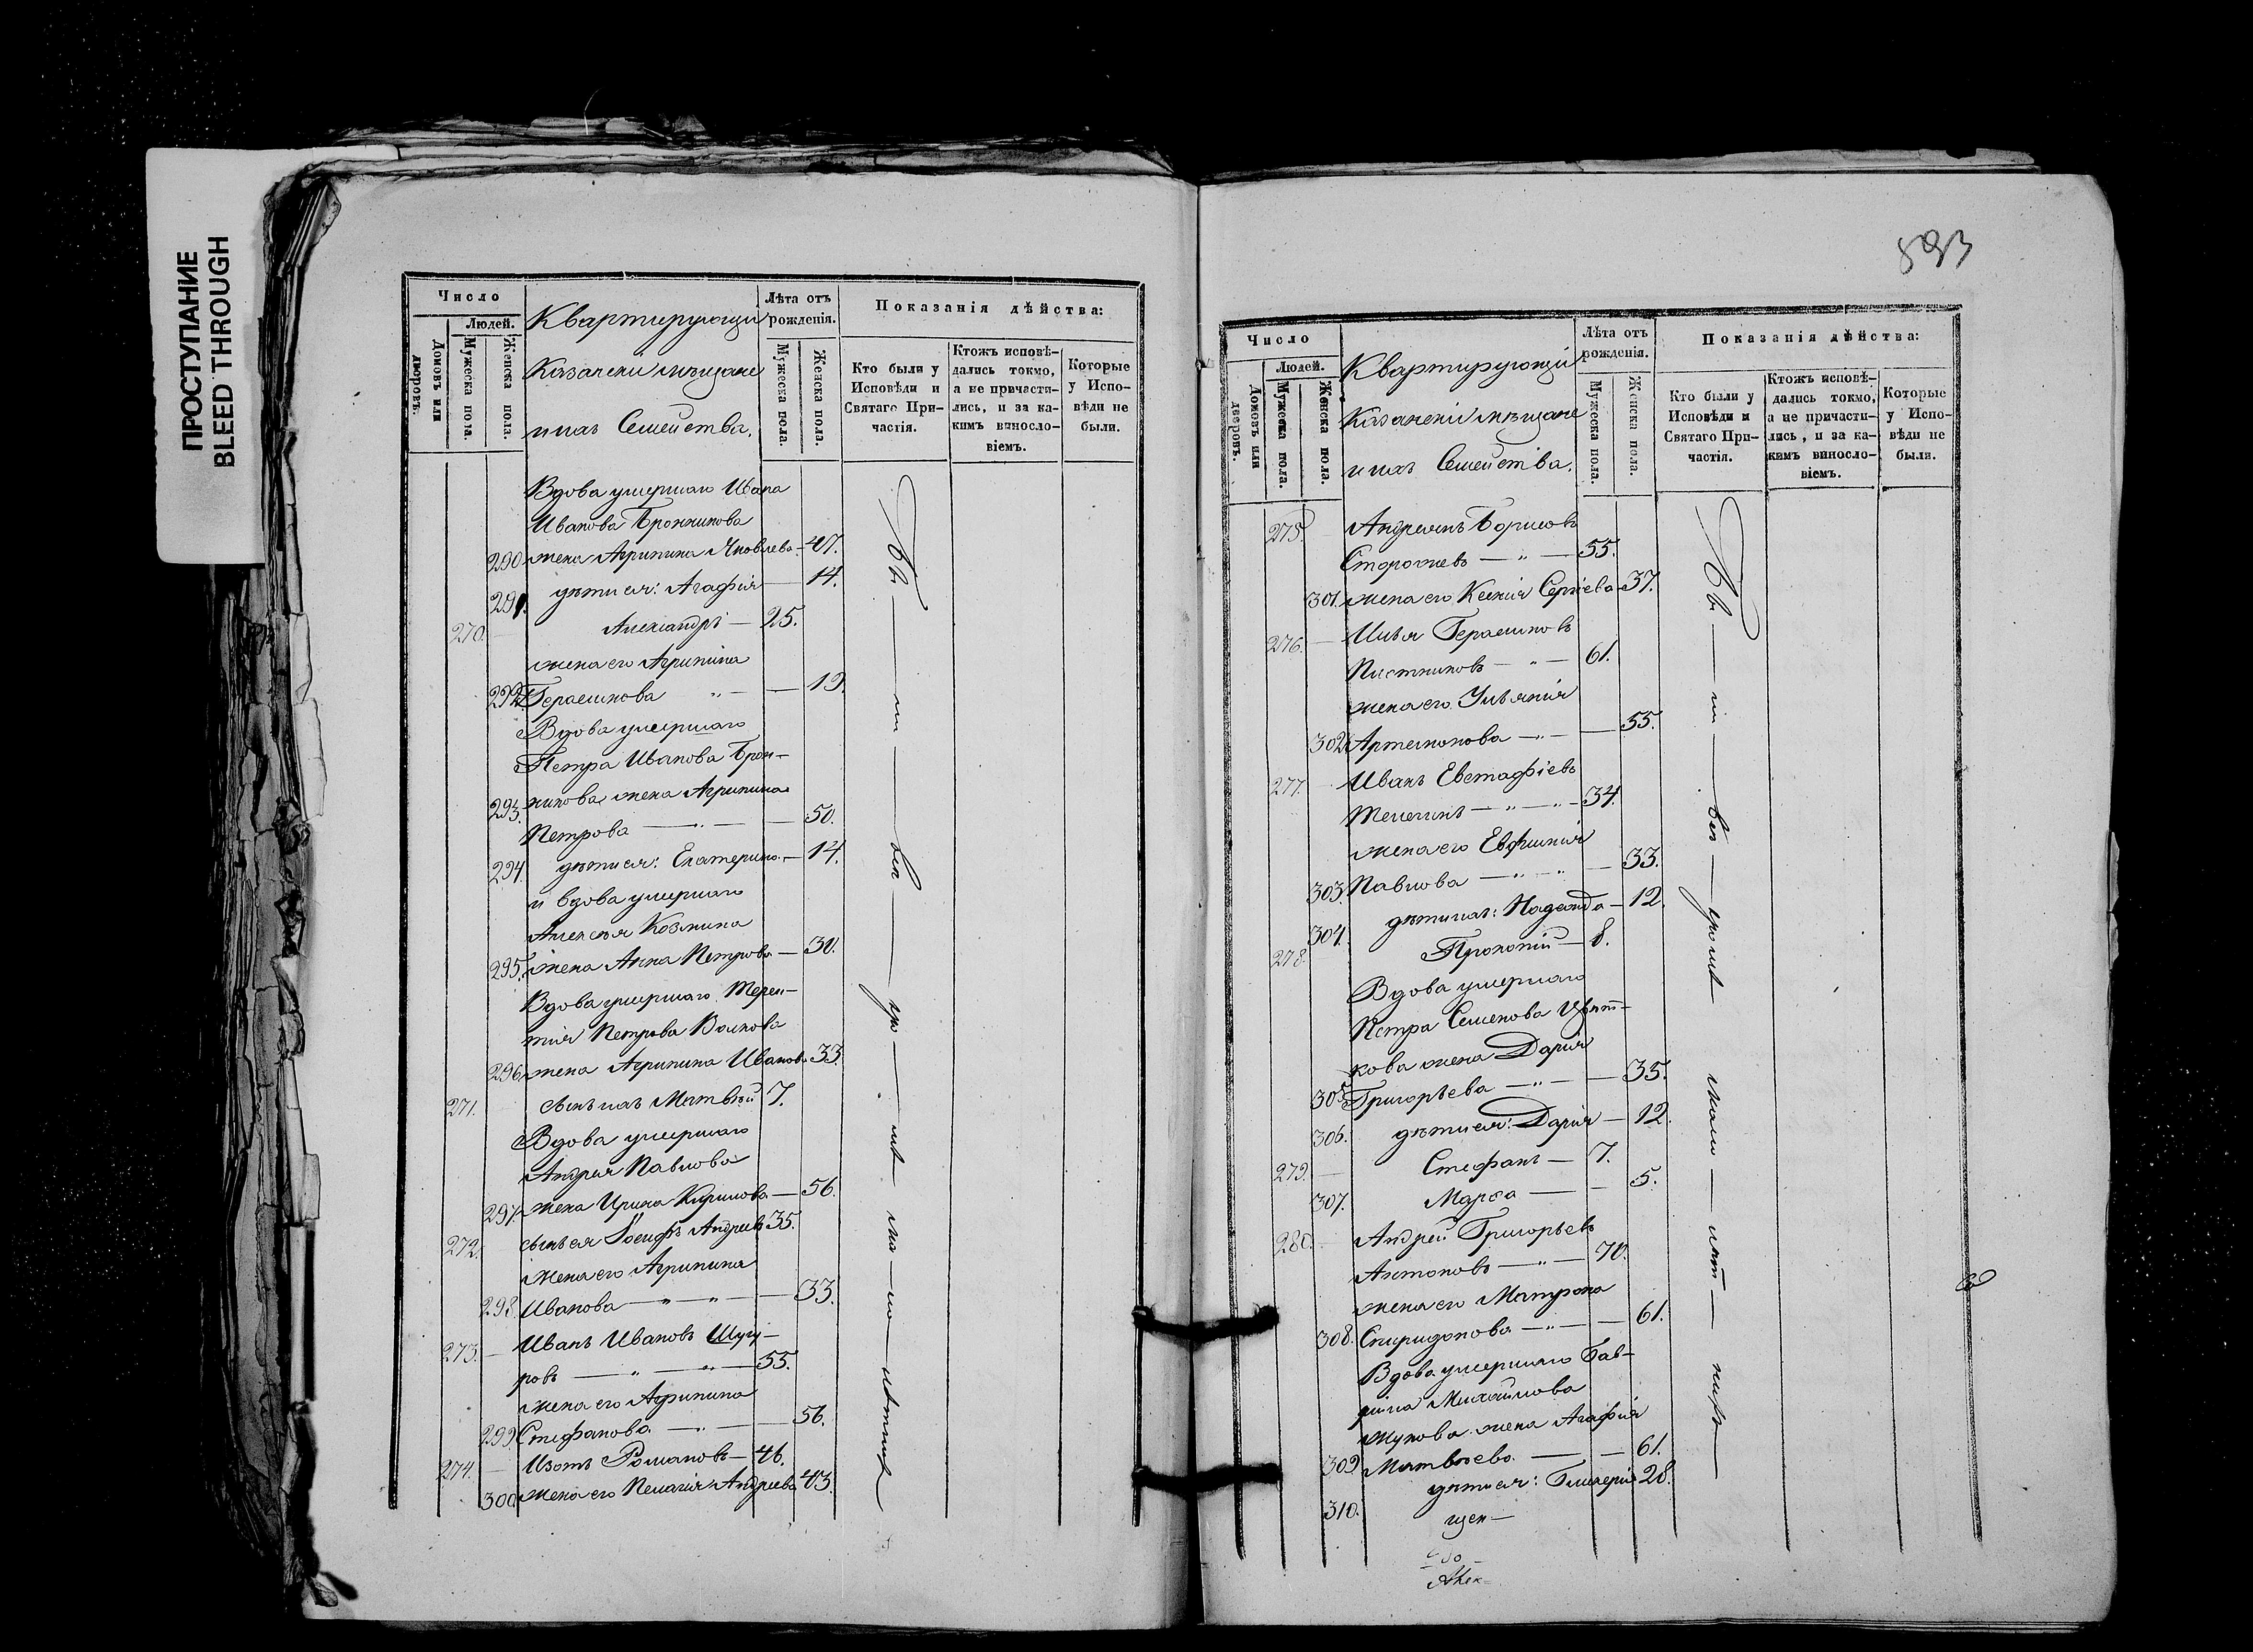 ПРОСТУПАНИЕ
BLEED THROUGH
Число
Людей.
Домовъ или дворовъ.
Мужеска пола.
Женска пола.
Квартирующи
Казанскiи мѣщане
и ихъ Семейства.
Лѣта отъ рожденiя.
Мужеска пола.
Женска пола.
Показанiя дѣйства:
Кто были у
Исповѣди и
Святаго При-
частiя.
Ктожъ исповѣ-
дались токмо,
а не причасти-
лись, и за ка-
кимъ винosло-
вiемъ.
Которые
у Испо-
вѣди не
были.
Вдова умершаго Ивана
Иванова Бронникова
290. жена Агрипина Яковлева — 47.
291. дѣти ея: Агафiя — 14.
270. Александръ — 25.
жена его Агрипина
292. Герасимова — 19.
Вдова умершаго
Петра Иванова Брон-
293. никова жена Агрипина
Петрова — 50.
294. дѣти ея: Екатерина — 14.
и вдова умершаго
Алексѣя Козмина
295. жена Анна Петрова — 30.
Вдова умершаго Терен-
тiя Петрова Волкова
296. жена Агрипина Иванова 33.
271. сынъ ихъ Матвѣй 7.
Вдова умершаго
Андрея Павлова
297. жена Ирина Кирилова — 56.
272. сынъ ея Iосифъ Андреевъ 35.
жена его Агрипина
298. Иванова — 33.
273. Иванъ Ивановъ Шугу-
ровъ — 55.
жена его Агрипина
299. Стефанова — 56.
274. Изотъ Романовъ — 46.
300. жена его Пелагiя Андреева 43.
893
Число
Людей.
Домовъ или дворовъ.
Мужеска пола.
Женска пола.
Квартирующiй
Казанскiи мѣщане
и ихъ Семейства.
Лѣта отъ рожденiя.
Мужеска пола.
Женска пола.
Показанiя дѣйства:
Кто были у
Исповѣди и
Святаго При-
частiя.
Ктожъ исповѣ-
дались токмо,
а не причасти-
лись, и за ка-
кимъ винosло-
вiемъ.
Которые
у Испо-
вѣди не
были.
275. Андреянъ Борисовъ
Сторожевъ — 55.
301. жена его Ксенiя Сергiева 37.
276. Илья Герасимовъ
Пистниковъ — 61.
жена его Ульянiя
302. Артемонова — 55.
277. Иванъ Евстафiевъ
Телегинъ — 34.
жена его Евфимiя
303. Павлова — 33.
304. дѣти ихъ: Надежда — 12.
278. Прокопiй — 8.
Вдова умершаго
Петра Семенова Цвѣт-
кова жена Дарiя
305. Григорьева — 35.
306. дѣти ея: Дарiя — 12.
279. Стефанъ — 7.
307. Марѳа — 5.
280. Андрей Григорьевъ
Антоновъ — 70.
жена его Матрона
308. Спиридонова — 61.
Вдова умершаго Гав-
рiила Михайлова
Жукова жена Агафiя
309. Матвѣева — 61.
310. дѣти ея: Гликерiя 28.